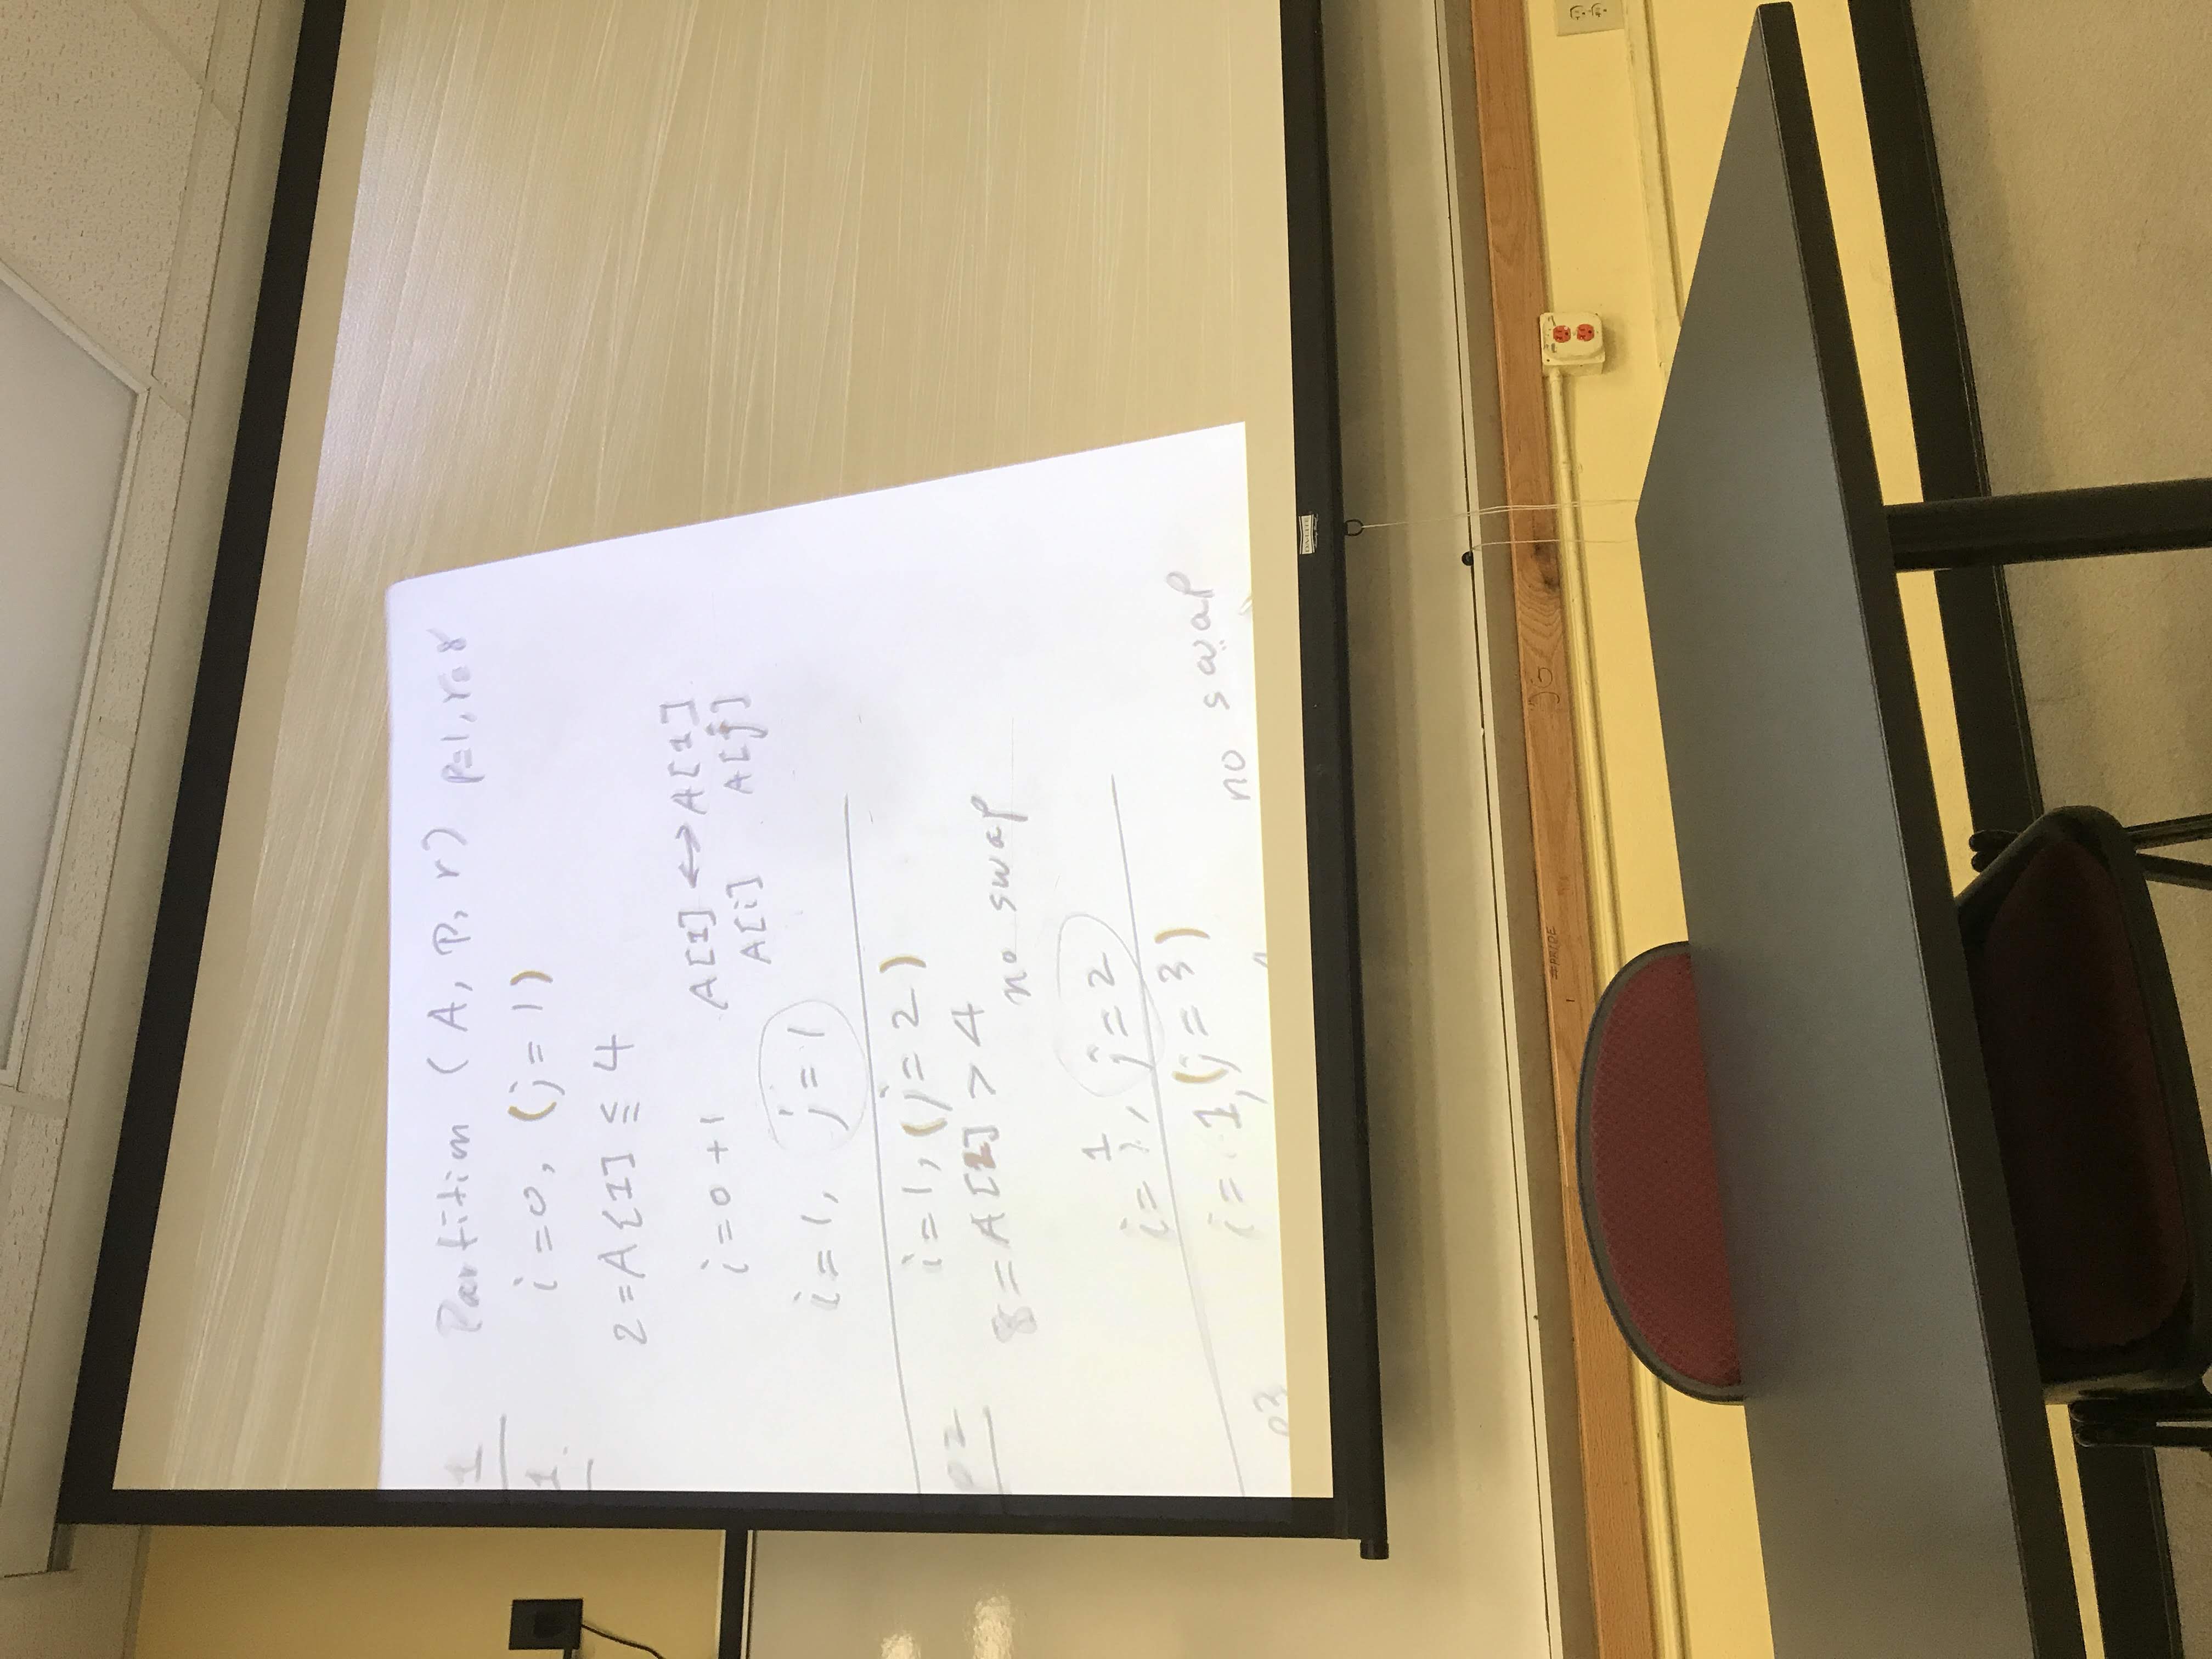 1 Partition (A, P, r) p=1, r=8
1. i=0, (j=1)
2=A[1] ≦ 4
i=0+1 A[1] ↔ A[1]
A[i] A[j]
i=1, j=1
i=1, (j=2)
02
8=A[2] > 4
no swap
1
i=1, j=2
i= 1, (j=3)
no swap
03
DA-LITE
#PRIDE
JG